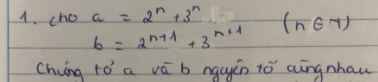 1. cho a = 2ⁿ + 3ⁿ (n ∈ N)
b = 2ⁿ⁺¹ + 3ⁿ⁺¹
Chứng tỏ a và b nguyên tố cùng nhau